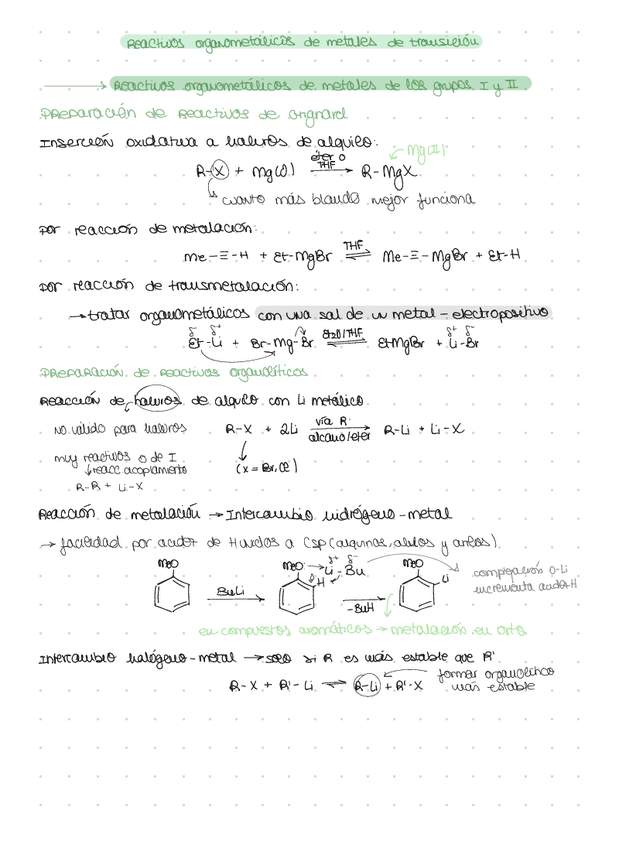 Reactivos organometálicos de metales de transición
→ Reactivos organometálicos de metales de los grupos I y II
Preparación de reactivos de Grignard
Inserción oxidativa a haluros de alquilo:
Mg(II)
R-X + Mg(0) éter o THF → R-MgX
cuanto más blando mejor funciona
por reacción de metalación:
Me-≡-H + Et-MgBr THF ⇌ Me-≡-MgBr + Et-H
por reacción de transmetalación:
→ tratar organometálicos con una sal de un metal-electropositivo
δ- δ+ Et-Li + Br-Mg-Br Et2O/THF ⇌ EtMgBr + δ+ δ- Li-Br
Preparación de reactivos organolíticos
Reacción de haluros de alquilo con Li metálico
no válido para haluros
muy reactivos o de I
↳ reacc acoplamento
R-R + Li-X
R-X + 2Li vía R· alcano/eter → R-Li + Li-X
(X = Br, Cl)
Reacción de metalación → Intercambio hidrógeno-metal
→ facilidad por acidez de H unidos a Csp (alquinos, alilos y arilos)
MeO BuLi → MeO δ+ Li - δ- Bu H -BuH → MeO Li
complejación O-Li
incrementa acidez H
en compuestos aromáticos → metalación en orto
Intercambio halógeno-metal → solo si R es más estable que R'
R-X + R'-Li ⇌ R-Li + R'-X
formar organolítico
más estable